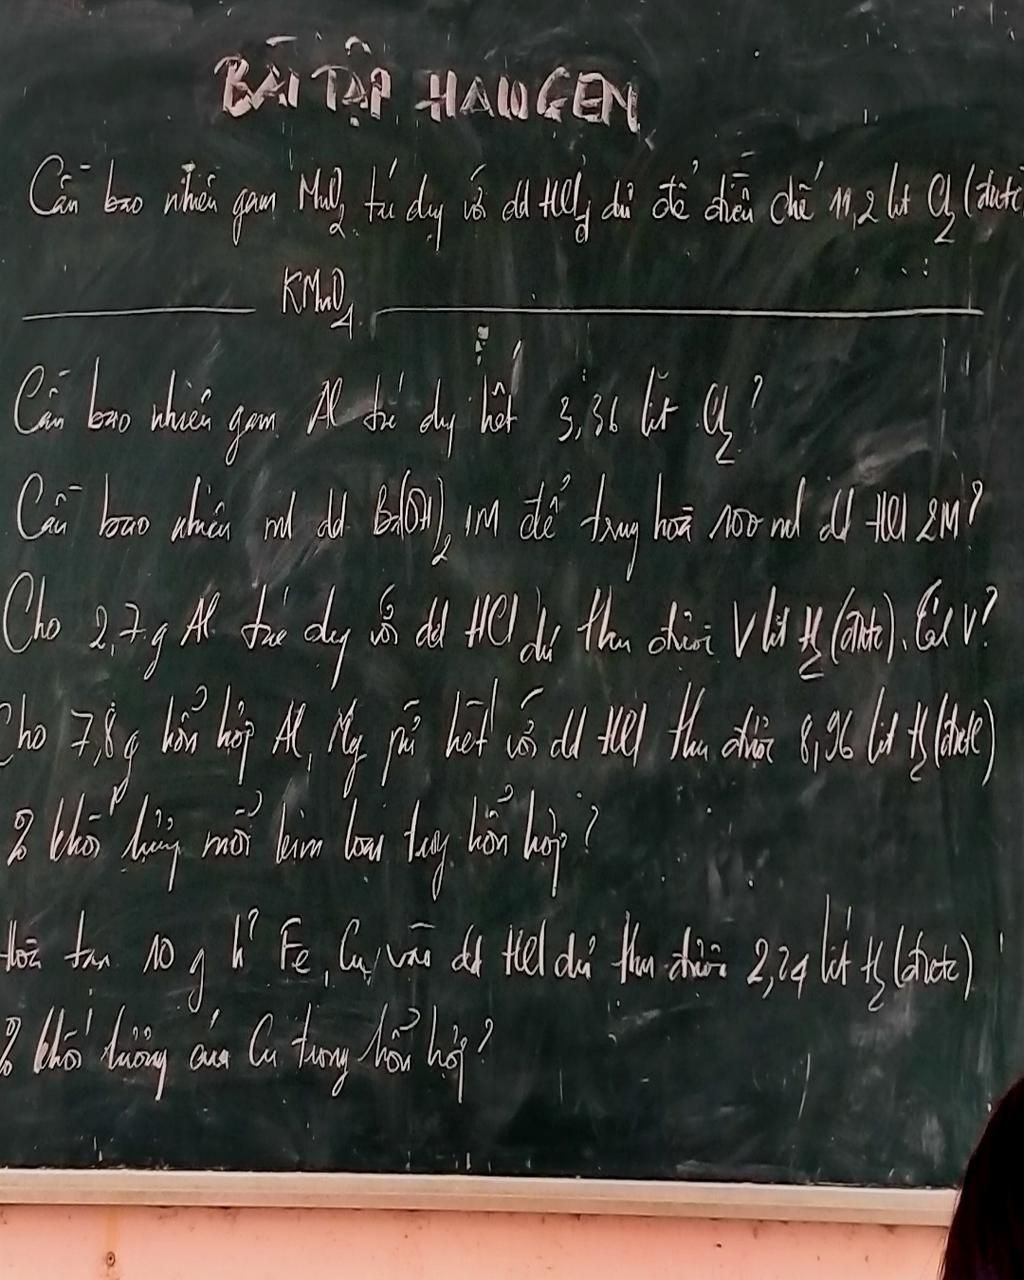 BÀI TẬP HALOGEN
Cần bao nhiêu gam MnO2 tác dụng với dd HClđ dư để điều chế 11,2 lít Cl2 (đktc
KMnO4
Cần bao nhiêu gam Al tác dụng hết 3,36 lít Cl2?
Cần bao nhiêu ml dd Ba(OH)2 1M để trung hoà 100 ml dd HCl 2M?
Cho 2,7g Al tác dụng với dd HCl dư thu được V lít H2 (đktc). Tính V?
Cho 7,8g hỗn hợp Al, Mg pứ hết với dd HCl thu được 8,96 lít H2 (đktc)
% khối lượng mỗi kim loại trong hỗn hợp?
Hoà tan 10 g h² Fe, Cu vào dd HCl dư thu được 2,24 lít H2 (đktc)
% khối lượng của Cu trong hỗn hợp?